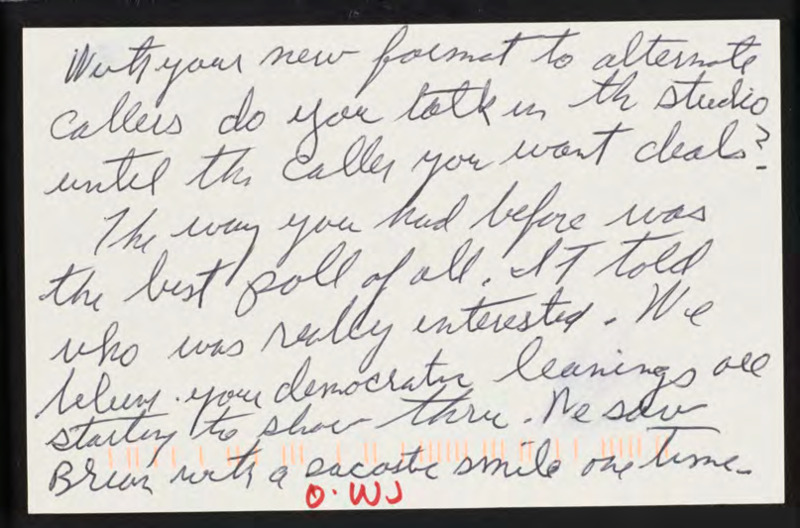 With your new format to alternate
callers do you talk in th studio
until the caller you want deals?
The way you had before was
the best poll of all. It told
who was really interested. We
believe your democratic leanings are
starting to show thru. We saw
Brian with a sacastic smile one time.
O. WJ